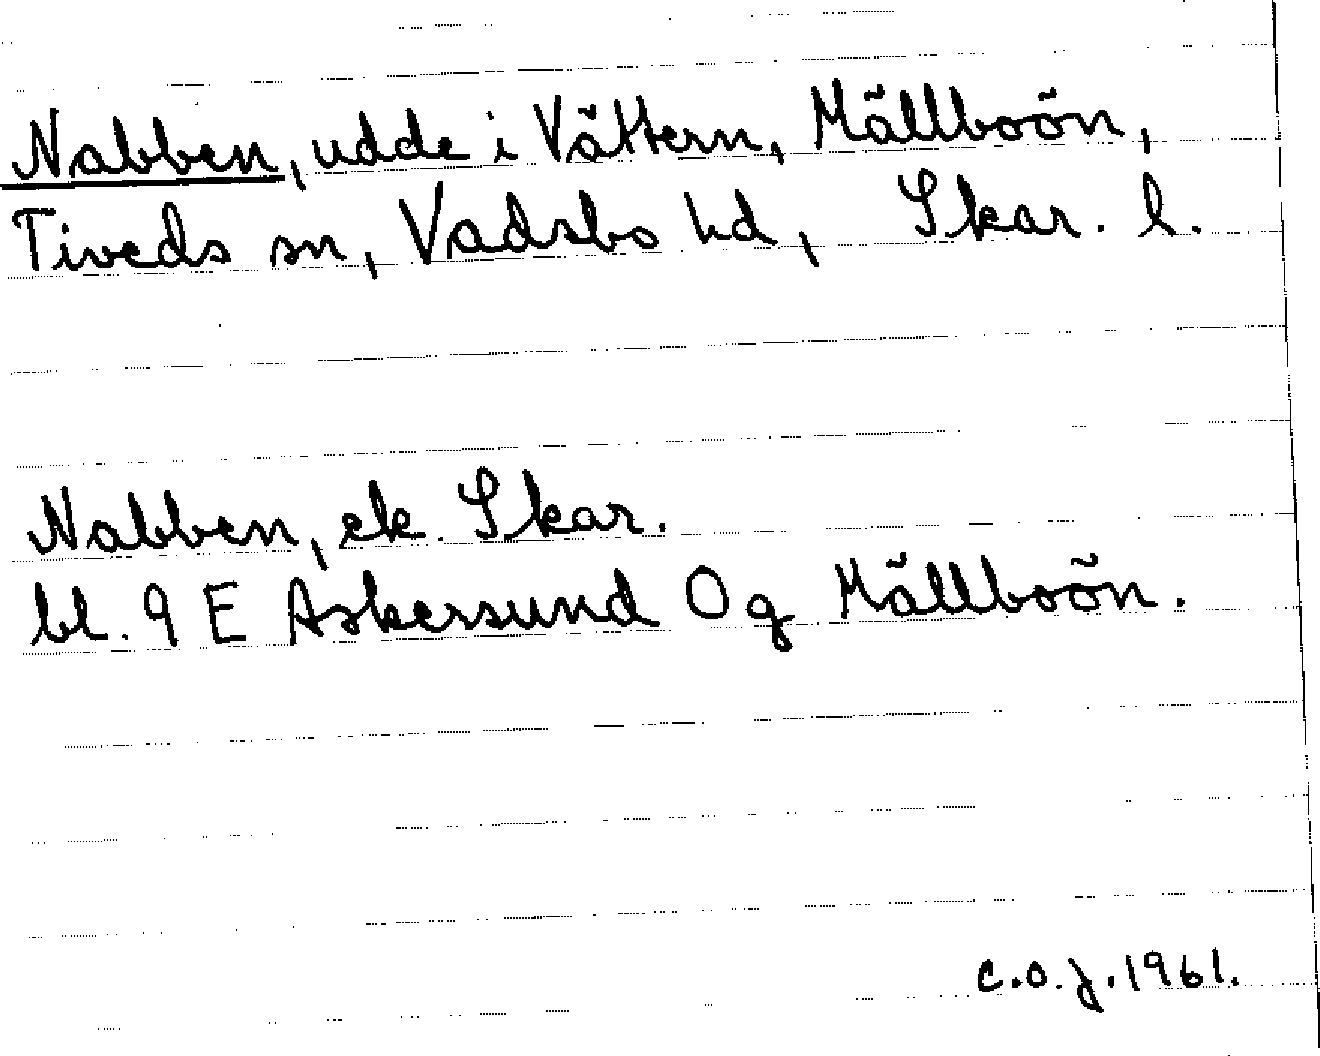 Nabben, udde i Vättern, Mällboön,
Tiveds sn, Vadsbo hd, Skar. l.
Nabben, ek. Skar.
bl. 9 E Askersund Og Mällboön.
c.o.j. 1961.